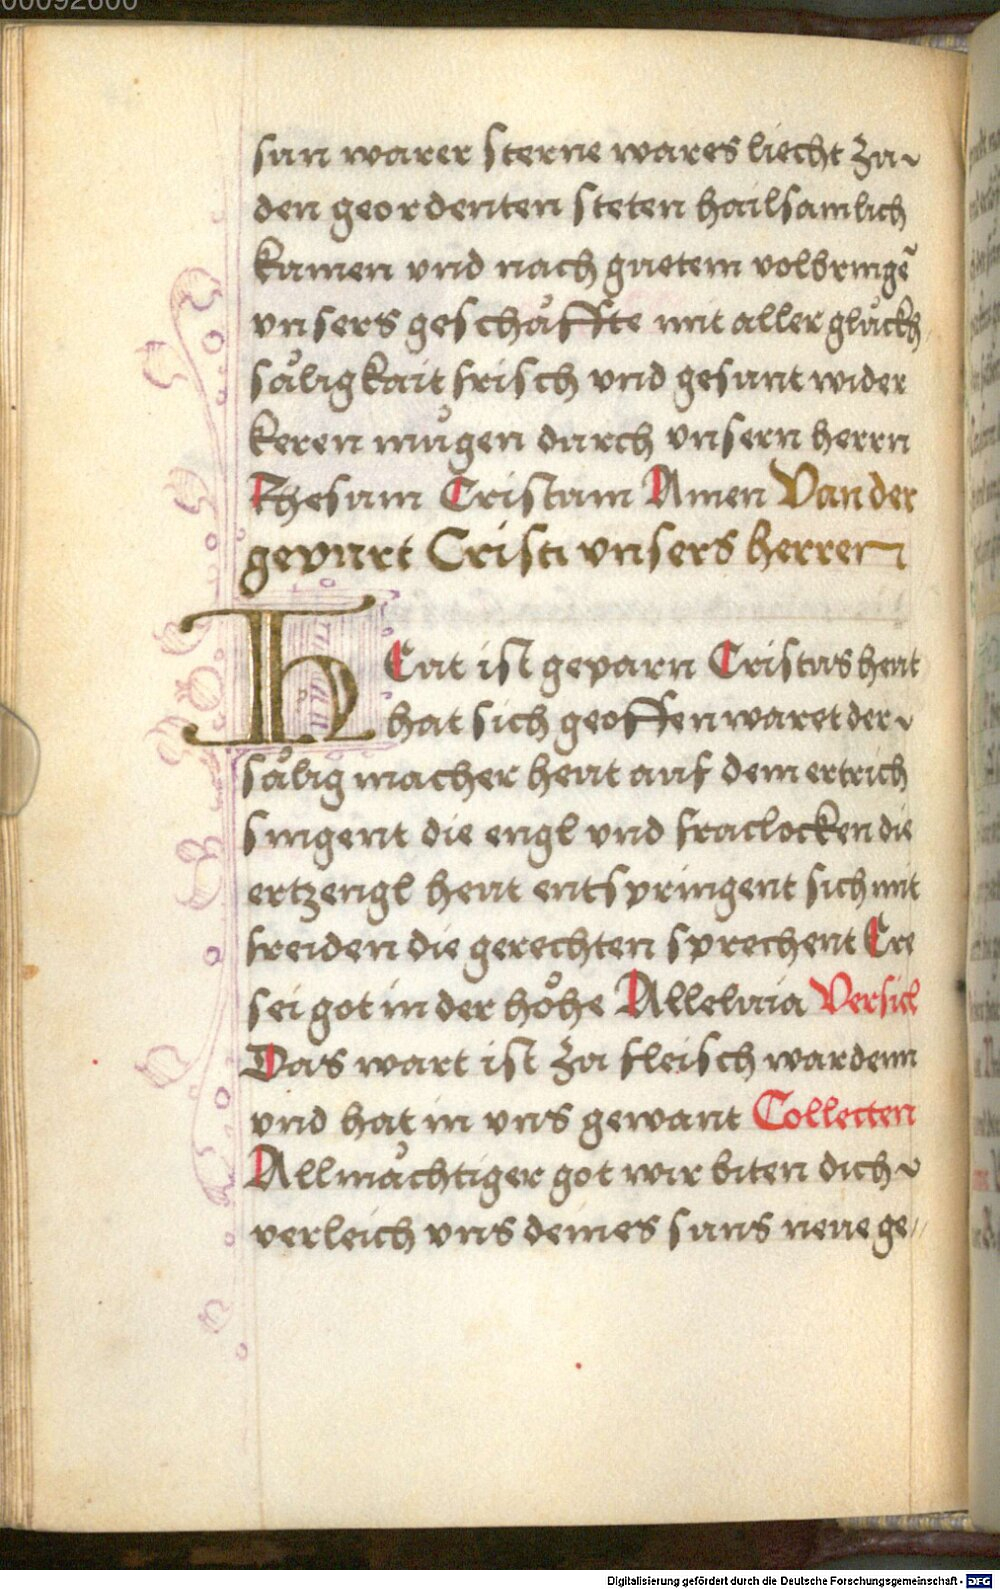 00092600
sun warer sterne wares liecht zu
den geordenten steten hailsamlich
kumen vnd nach guetem volbringē
vnsers geschåffte mit aller gluͤckh
såligkait frisch vnd gesunt wider
keren muͤgen durch vnsern herrn
Jhesum Cristum Amen Van der
gepurt Cristi vnsers herren
HEut ist geparn Cristus heut
hat sich geoffenwaret der
sålig macher heut auf dem ertrich
singent die engl vnd fraelocken die
ertzengl heut entspringent sich mit
freiden die gerechten sprechent Ere
sei got in der hoͤhe Alleluia Versicl
Das wart ist zu fleisch wardenn
vnd hat in vns gewant Collecten
Allmåchtiger got wir biten dich
verleich vns deines suns neue ge//
Digitalisierung gefördert durch die Deutsche Forschungsgemeinschaft - DFG